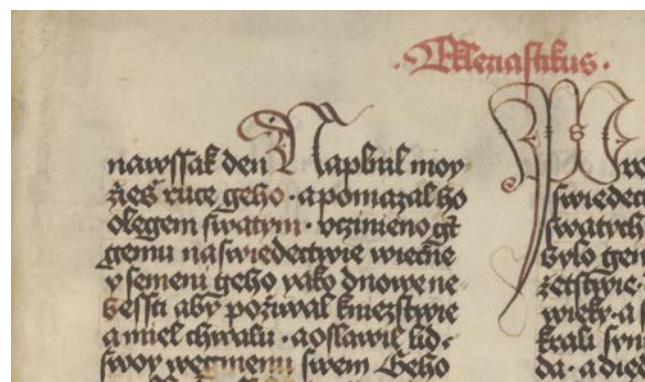 ·Ekklenastikus·
nawssak den Naplnil moy-
zieš ruce geho · a pomazal ho
olegem swatym · vczinieno gt
gemu na swiedectwie wiečne
y semeni geho yako dnowe ne-
bessti aby požiwal kniezstwie
a miel chwalu · a oslawil lid
swoy wegmenu swem Geho
swiedect
swatych
bylo gem
zetstwie·
wieky · a s
krali syn
da · a died